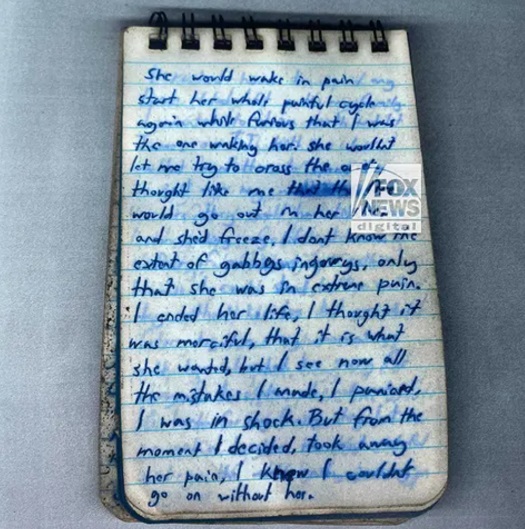 She would wake in pain
start her whole painful cycle
again while furious that I was
the one waking her. She wouldnt
let me try to cross the
thought like me
would go out in her
and she'd freeze, I dont know the
extent of gabbys, only
that she was in extreme pain.
I ended her life, I thought it
was merciful, that it is what
she wanted, but I see now all
the mistakes I made, I paniced,
I was in shock. But from the
moment I decided, took away
her pain, I knew I couldnt
go on without her.
FOX
NEWS
digital